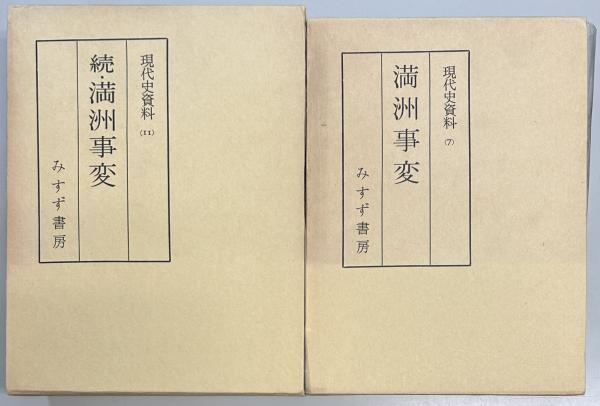 現代史資料 (11)
続・満洲事変
みすず書房
現代史資料 (7)
満洲事変
みすず書房